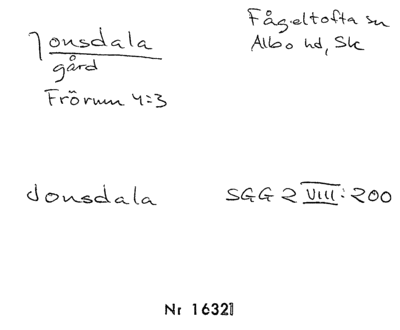 Jonsdala
gård
Frörum 4:3
Fågeltofta sn
Albo hd, Sk
Jonsdala
SGG 2 VIII: 200
Nr 16321